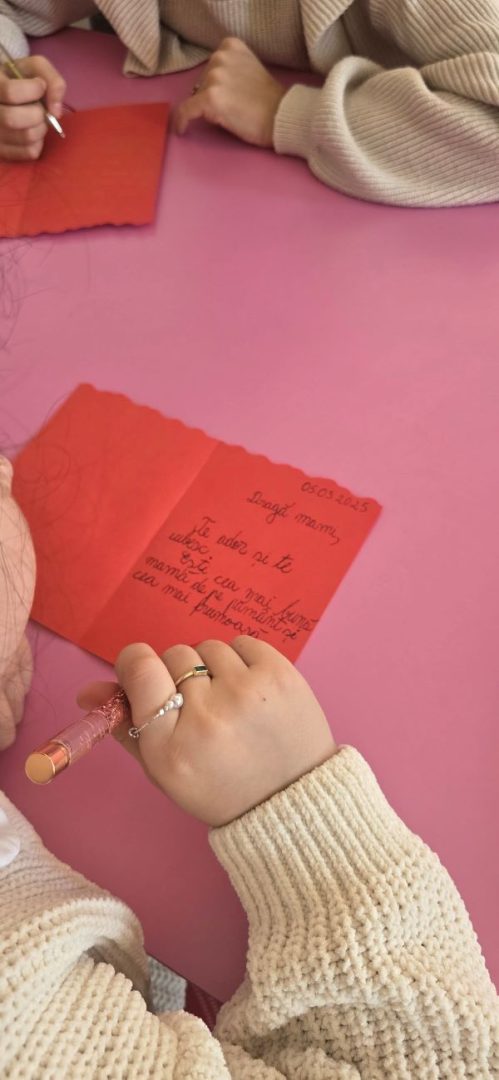 06.03.2025
Dragă mami,
Te ador și te
iubesc
Ești cea mai bună
mamă de pe pământ și
cea mai frumoasă